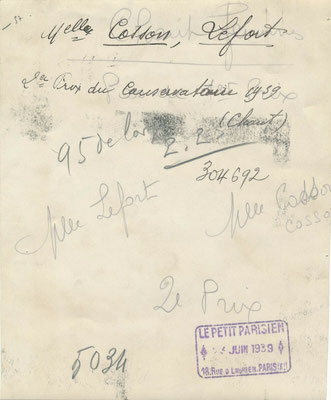 Melles Cosson, Lefort
2es Prix du Conservatoire 1939
(Chant)
95 de lar
2.2
304692
Mlle Lefort
Mlle Cosson
COSSO
2e Prix
LE PETIT PARISIEN
JUIN 1939
18, RUE D'ENGHIEN. PARIS
5034